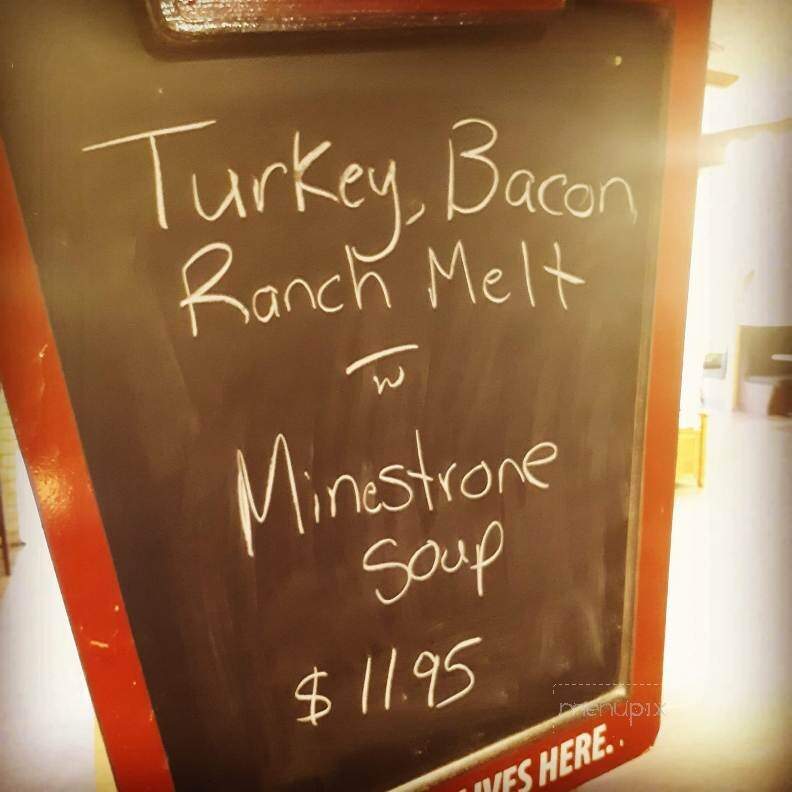 Turkey, Bacon
Ranch Melt
w
Minestrone
Soup
$11.95
menupix
LIVES HERE.